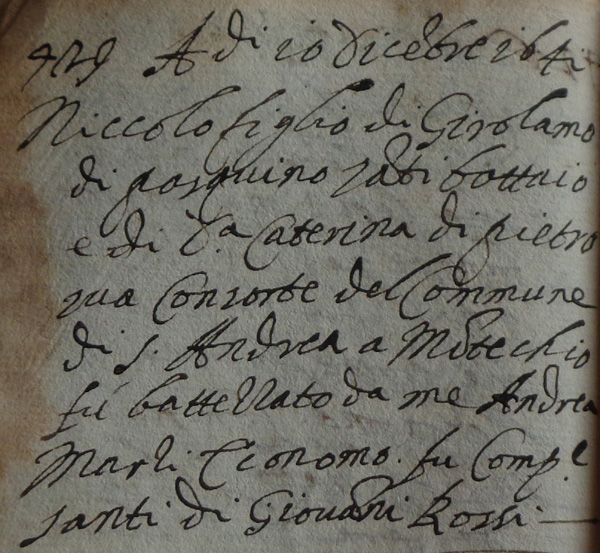 429 A di 10 Dicẽbre 1641
Niccolo figlio di Girolamo
di pasquino Sãti bottaio
e di D.a Caterina di pietro
sua Consorte del Commune
di S. Andrea a Mõtechio
fu battezzato da me Andrea
Marli Economo. fu Comp.e
santi di Giouãni Rossi